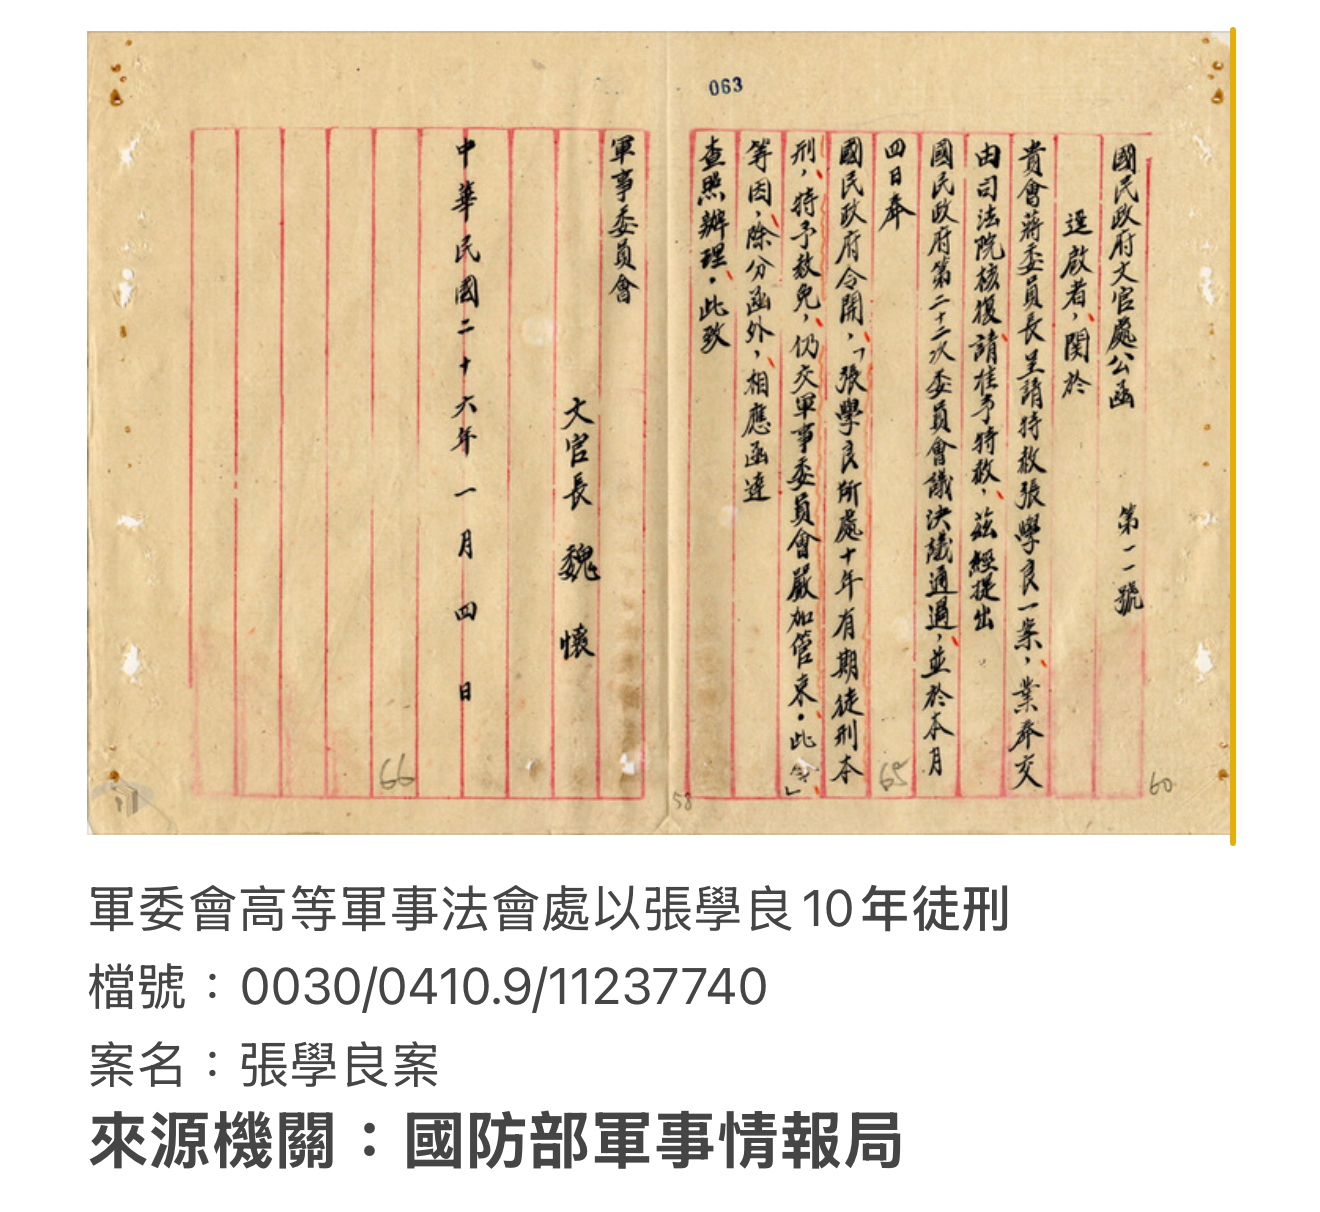 063
國民政府文官處公函 第一一號
逕啟者，関於
貴會蔣委員長呈請特赦張學良一案，業奉交
由司法院核復，請准予特赦，茲經提出
國民政府第二十二次委員會議決議通過，並於本月
四日奉
國民政府令開，「張學良所處十年有期徒刑本
刑，特予赦免，仍交軍事委員會嚴加管束。此令」
等因，除分函外，相應函達
查照辦理。此致
軍事委員會
文官長 魏 懷
中華民國二十六年一月四日
66
58
65
60
軍委會高等軍事法會處以張學良10年徒刑
檔號：0030/0410.9/11237740
案名：張學良案
來源機關：國防部軍事情報局